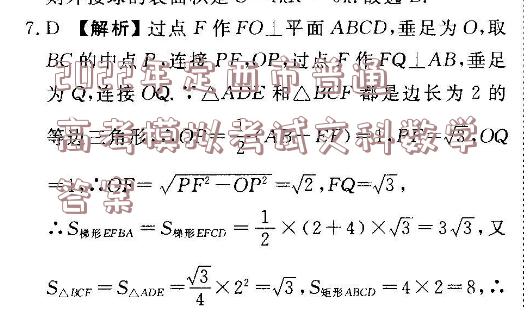 则外接球的表面积是
7. D 【解析】过点 F 作 FO⊥平面 ABCD,垂足为 O,取
BC 的中点 P,连接 PF,OP,过点 F 作 FQ⊥AB,垂足
为 Q,连接 OQ. ∵△ADE 和△BCF 都是边长为 2 的
等边三角形,∴OP=1/2(AB-EF)=1,PF=√3,OQ
=1,∴OF=√(PF²-OP²)=√2,FQ=√3,
∴S梯形EFBA=S梯形EFCD=1/2×(2+4)×√3=3√3,又
S△BCF=S△ADE=√3/4×2²=√3,S矩形ABCD=4×2=8,∴
2022年定西市普通
高考模拟考试文科数学
答案